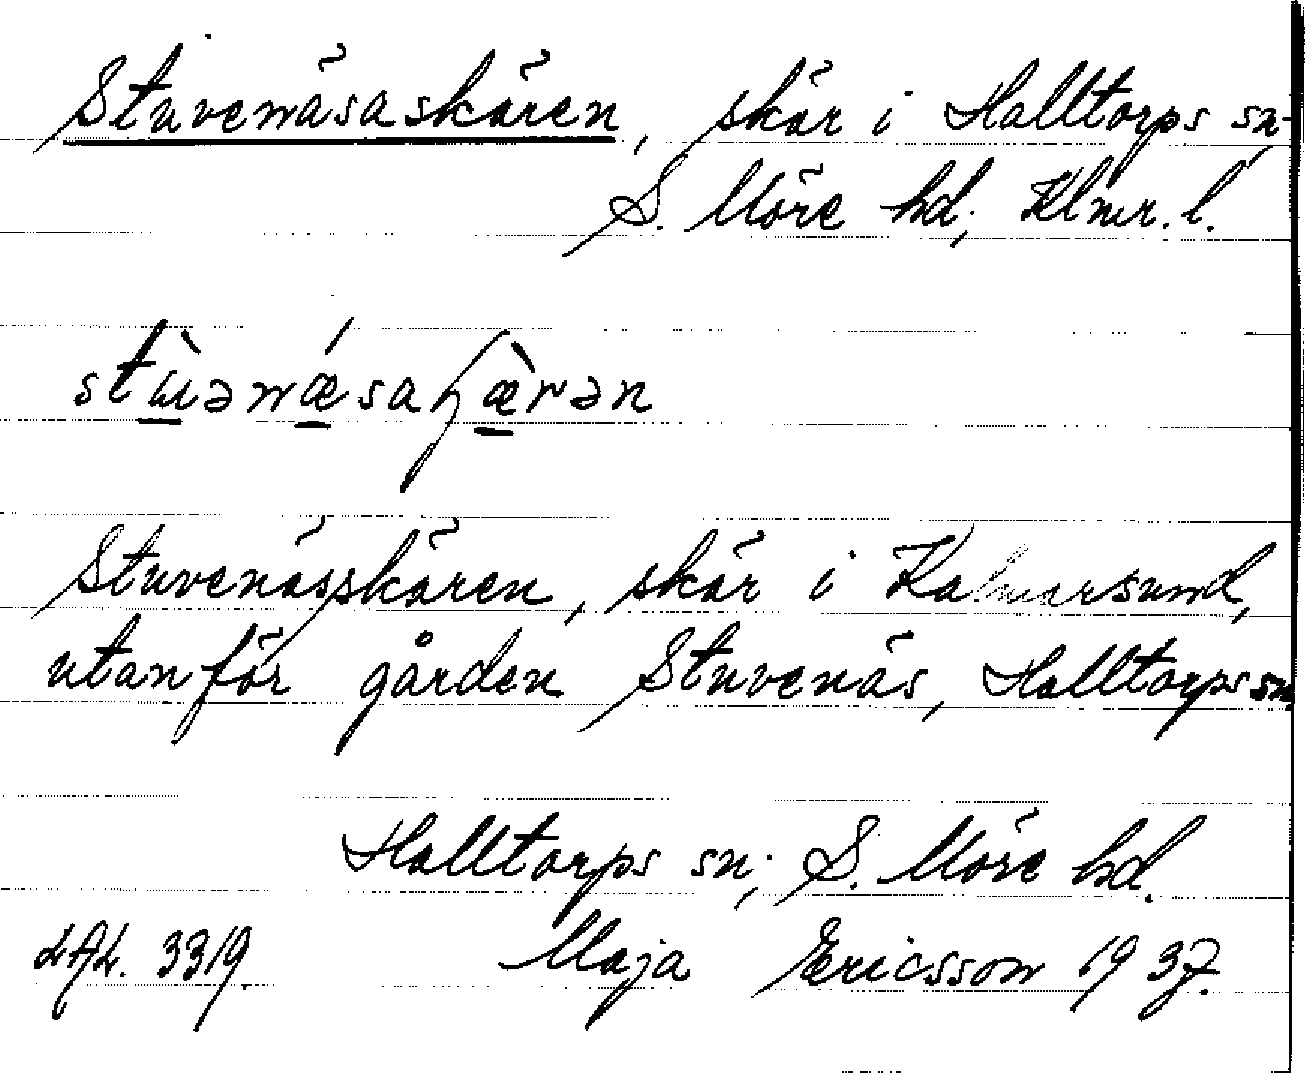 Stuvenäsaskären, skär i Halltorps sn,
S. Möre hd, Klmr. l.
Stuvenässkären, skär i Kalmarsund,
utanför gården Stuvenäs, Halltorps sn
Halltorps sn, S. Möre hd.
LAL. 3319. Maja Ericsson 1937.